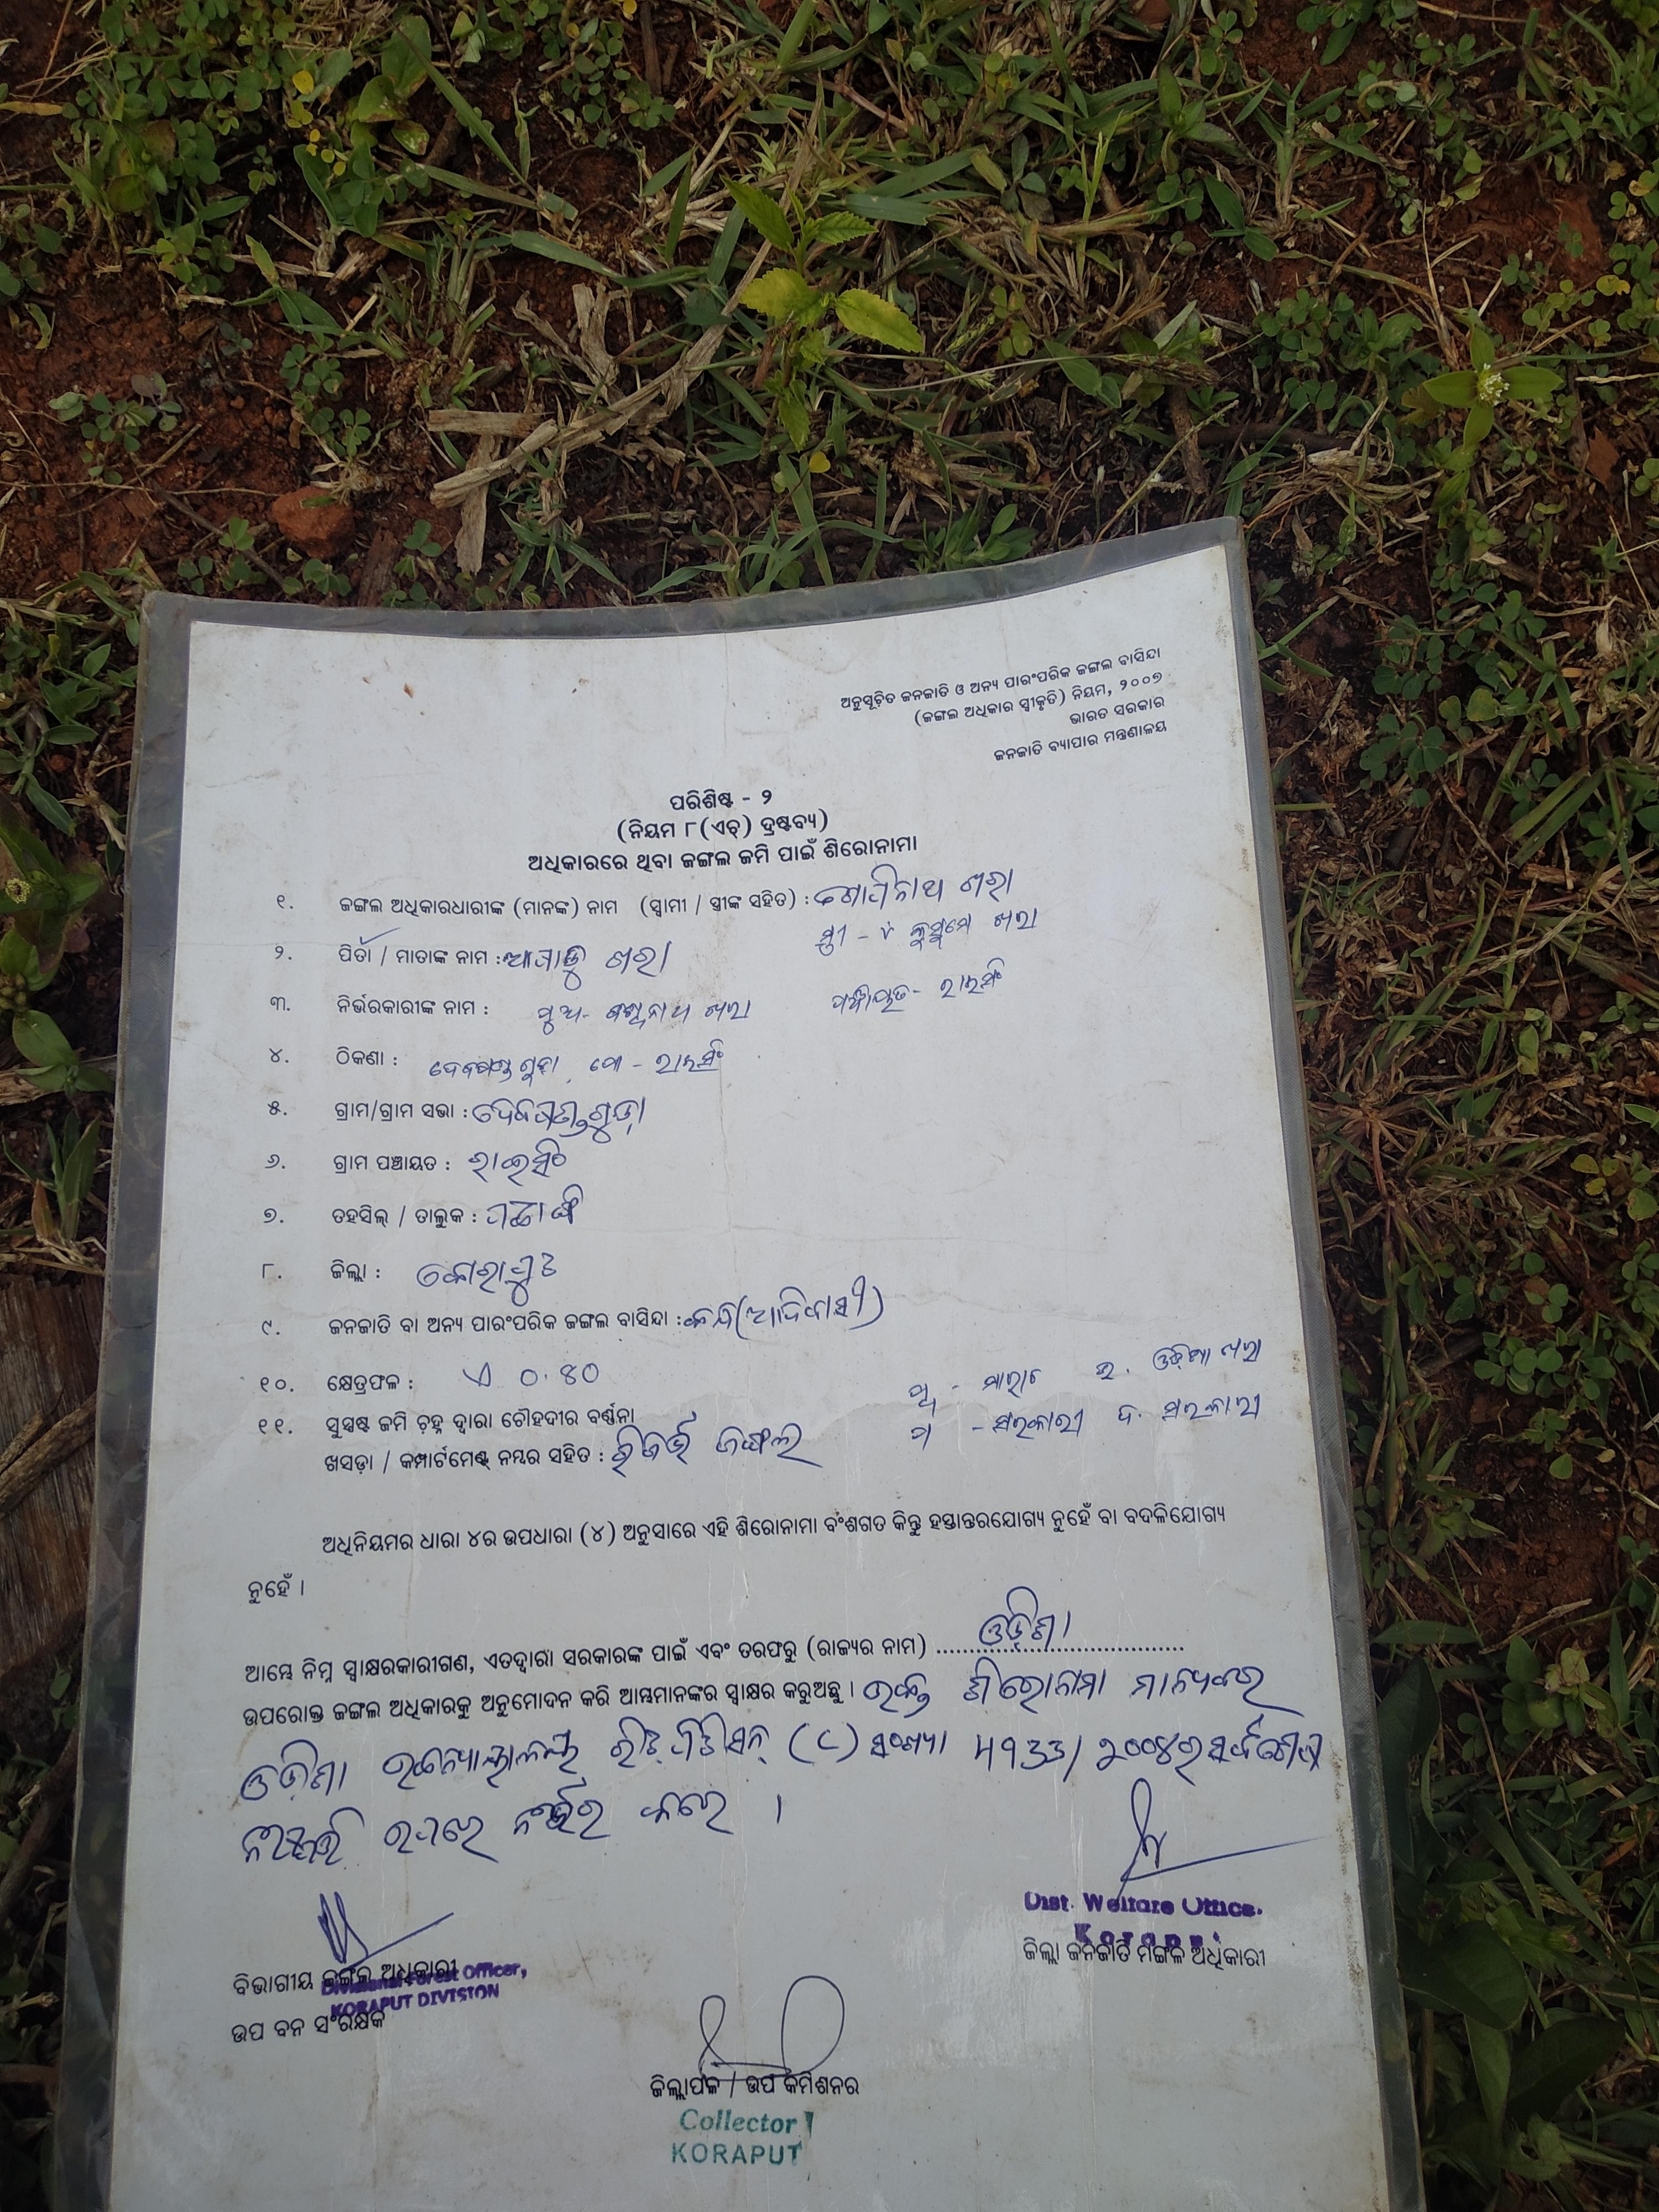 ଅନୁସୂଚିତ ଜନଜାତି ଓ ଅନ୍ୟ ପାରଂପରିକ ଜଙ୍ଗଲ ବାସିନ୍ଦା
(ଜଙ୍ଗଲ ଅଧିକାର ସ୍ୱୀକୃତି) ନିୟମ, ୨୦୦୭
ଭାରତ ସରକାର
ଜନଜାତି ବ୍ୟାପାର ମନ୍ତ୍ରଣାଳୟ
ପରିଶିଷ୍ଟ - ୨
(ନିୟମ ୮(ଏଚ୍) ଦ୍ରଷ୍ଟବ୍ୟ)
ଅଧିକାରରେ ଥିବା ଜଙ୍ଗଲ ଜମି ପାଇଁ ଶିରୋନାମା
୧. ଜଙ୍ଗଲ ଅଧିକାରଧାରୀଙ୍କ (ମାନଙ୍କ) ନାମ (ସ୍ୱାମୀ / ସ୍ତ୍ରୀଙ୍କ ସହିତ) : ଖରା
ସ୍ତ୍ରୀ - ଖରା
୨. ପିତା / ମାତାଙ୍କ ନାମ : ଖରା
୩. ନିର୍ଭରକାରୀଙ୍କ ନାମ : ପୁଅ- ଖରା ପଞ୍ଚାୟତ- ରାଇସିଂ
୪. ଠିକଣା : ପୋ - ରାଇସିଂ
୫. ଗ୍ରାମ/ଗ୍ରାମ ସଭା :
୬. ଗ୍ରାମ ପଞ୍ଚାୟତ : ରାଇସିଂ
୭. ତହସିଲ୍ / ତାଲୁକ :
୮. ଜିଲ୍ଲା : କୋରାପୁଟ
୯. ଜନଜାତି ବା ଅନ୍ୟ ପାରଂପରିକ ଜଙ୍ଗଲ ବାସିନ୍ଦା : (ଆଦିବାସୀ)
୧୦. କ୍ଷେତ୍ରଫଳ : ଏ ୦.୫୦
ଉ. ଓଡ଼ିଆ ଖରା
୧୧. ସୁସ୍ପଷ୍ଟ ଜମି ଚିହ୍ନ ଦ୍ୱାରା ଚୌହଦୀର ବର୍ଣ୍ଣନା
ପ - ସରକାରୀ ଦ. ସରକାରୀ
ଖସଡ଼ା / କମ୍ପାର୍ଟମେଣ୍ଟ୍ ନମ୍ବର ସହିତ : ରିଜର୍ଭ ଜଙ୍ଗଲ
ଅଧିନିୟମର ଧାରା ୪ର ଉପଧାରା (୪) ଅନୁସାରେ ଏହି ଶିରୋନାମା ବଂଶଗତ କିନ୍ତୁ ହସ୍ତାନ୍ତରଯୋଗ୍ୟ ନୁହେଁ ବା ବଦଳିଯୋଗ୍ୟ
ନୁହେଁ ।
ଆମ୍ଭେ ନିମ୍ନ ସ୍ୱାକ୍ଷରକାରୀଗଣ, ଏତଦ୍ୱାରା ସରକାରଙ୍କ ପାଇଁ ଏବଂ ତରଫରୁ (ରାଜ୍ୟର ନାମ) ଓଡ଼ିଶା
ଉପରୋକ୍ତ ଜଙ୍ଗଲ ଅଧିକାରକୁ ଅନୁମୋଦନ କରି ଆମ୍ଭମାନଙ୍କର ସ୍ୱାକ୍ଷର କରୁଅଛୁ । ଉକ୍ତ ଶିରୋନାମା ମାନ୍ୟବର
ଓଡ଼ିଶା ରିଟ୍ ପିଟିସନ୍ (C) ସଂଖ୍ୟା
ଉପରେ ନିର୍ଭର କରେ ।
Dist. Welfare Officer
Koraput
ଜିଲ୍ଲା ଜନଜାତି ମଙ୍ଗଳ ଅଧିକାରୀ
ବିଭାଗୀୟ ଜଙ୍ଗଲ ଅଧିକାରୀ
Divisional Forest Officer,
KORAPUT DIVISION
ଉପ ବନ ସଂରକ୍ଷକ
ଜିଲ୍ଲାପଳ / ଉପ କମିଶନର
Collector
KORAPUT